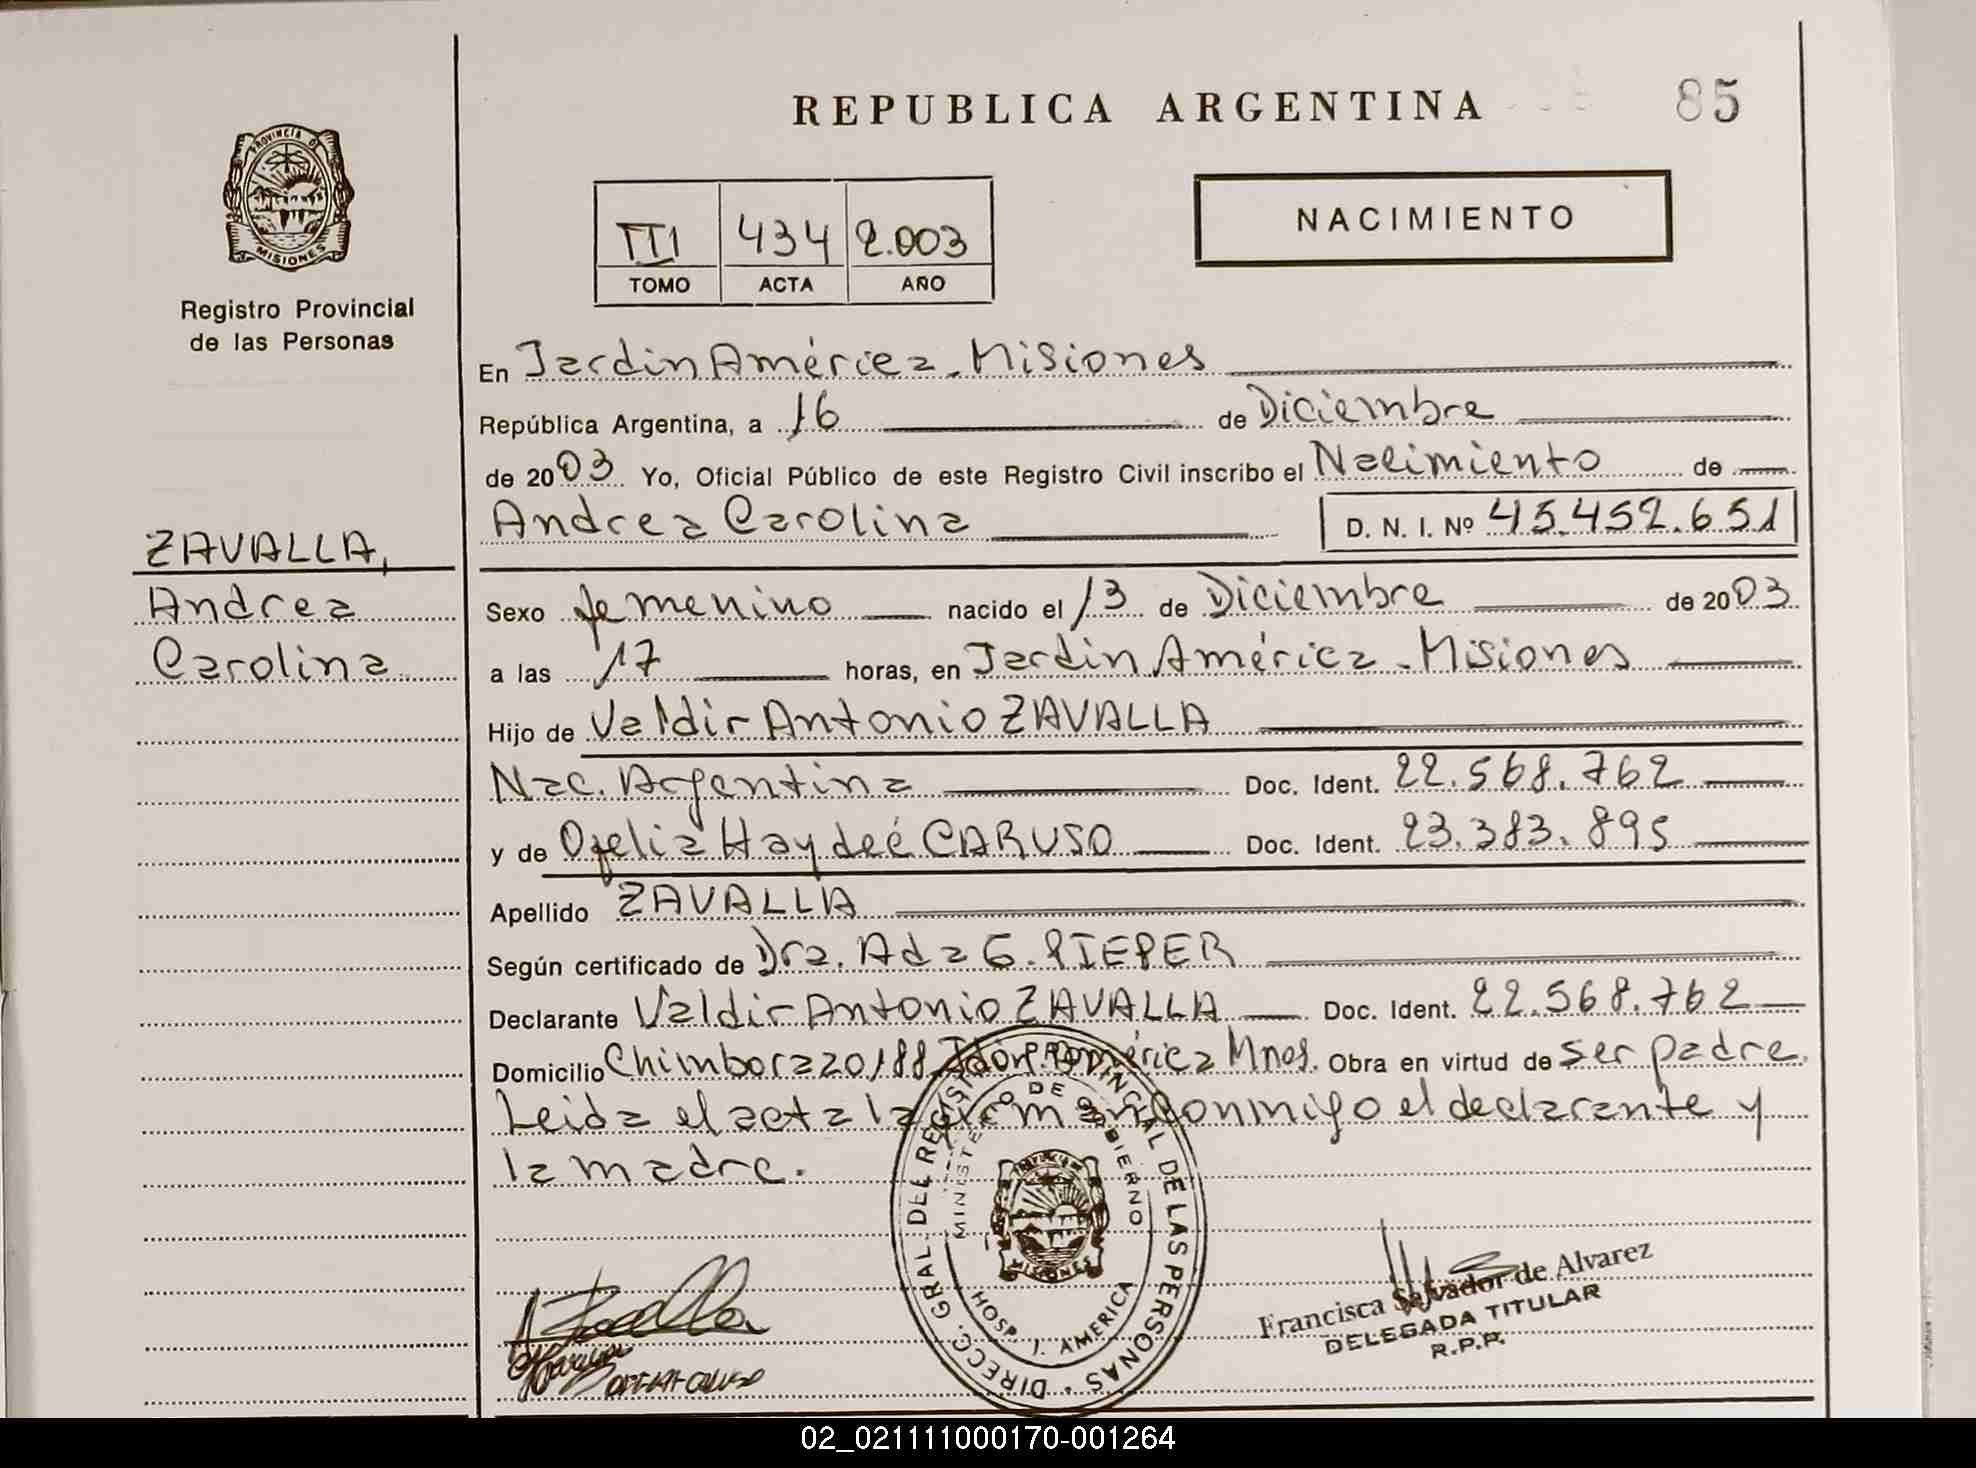 REPUBLICA ARGENTINA
85
PROVINCIA D
MISIONES
Registro Provincial
de las Personas
III 434 2.003
TOMO ACTA AÑO
NACIMIENTO
ZAVALLA,
Andrea
Carolina
En Jardin América. Misiones
República Argentina, a 16 de Diciembre
de 2003 Yo, Oficial Público de este Registro Civil inscribo el Nacimiento de
Andrea Carolina D. N. I. Nº 45.452.651
Sexo femenino nacido el 13 de Diciembre de 2003
a las 17 horas, en Jardin América. Misiones
Hijo de Valdir Antonio ZAVALLA
Nac. Argentina Doc. Ident. 22.568.762
y de Ofelia Haydeé CARUSO Doc. Ident. 23.383.895
Apellido ZAVALLA
Según certificado de Dra. Ada G. PIEPER
Declarante Valdir Antonio ZAVALLA Doc. Ident. 22.568.762
Domicilio Chimborazo 188 Jdín. América Mnes. Obra en virtud de ser padre.
Leida el acta la firman conmigo el declarante y
la madre.
DIRECC. GRAL. DEL REGISTRO PROVINCIAL DE LAS PERSONAS
MINISTERIO DE GOBIERNO
MISIONES
HOSP. J. AMERICA
Francisca Salvador de Alvarez
DELEGADA TITULAR
R.P.P.
02_021111000170-001264